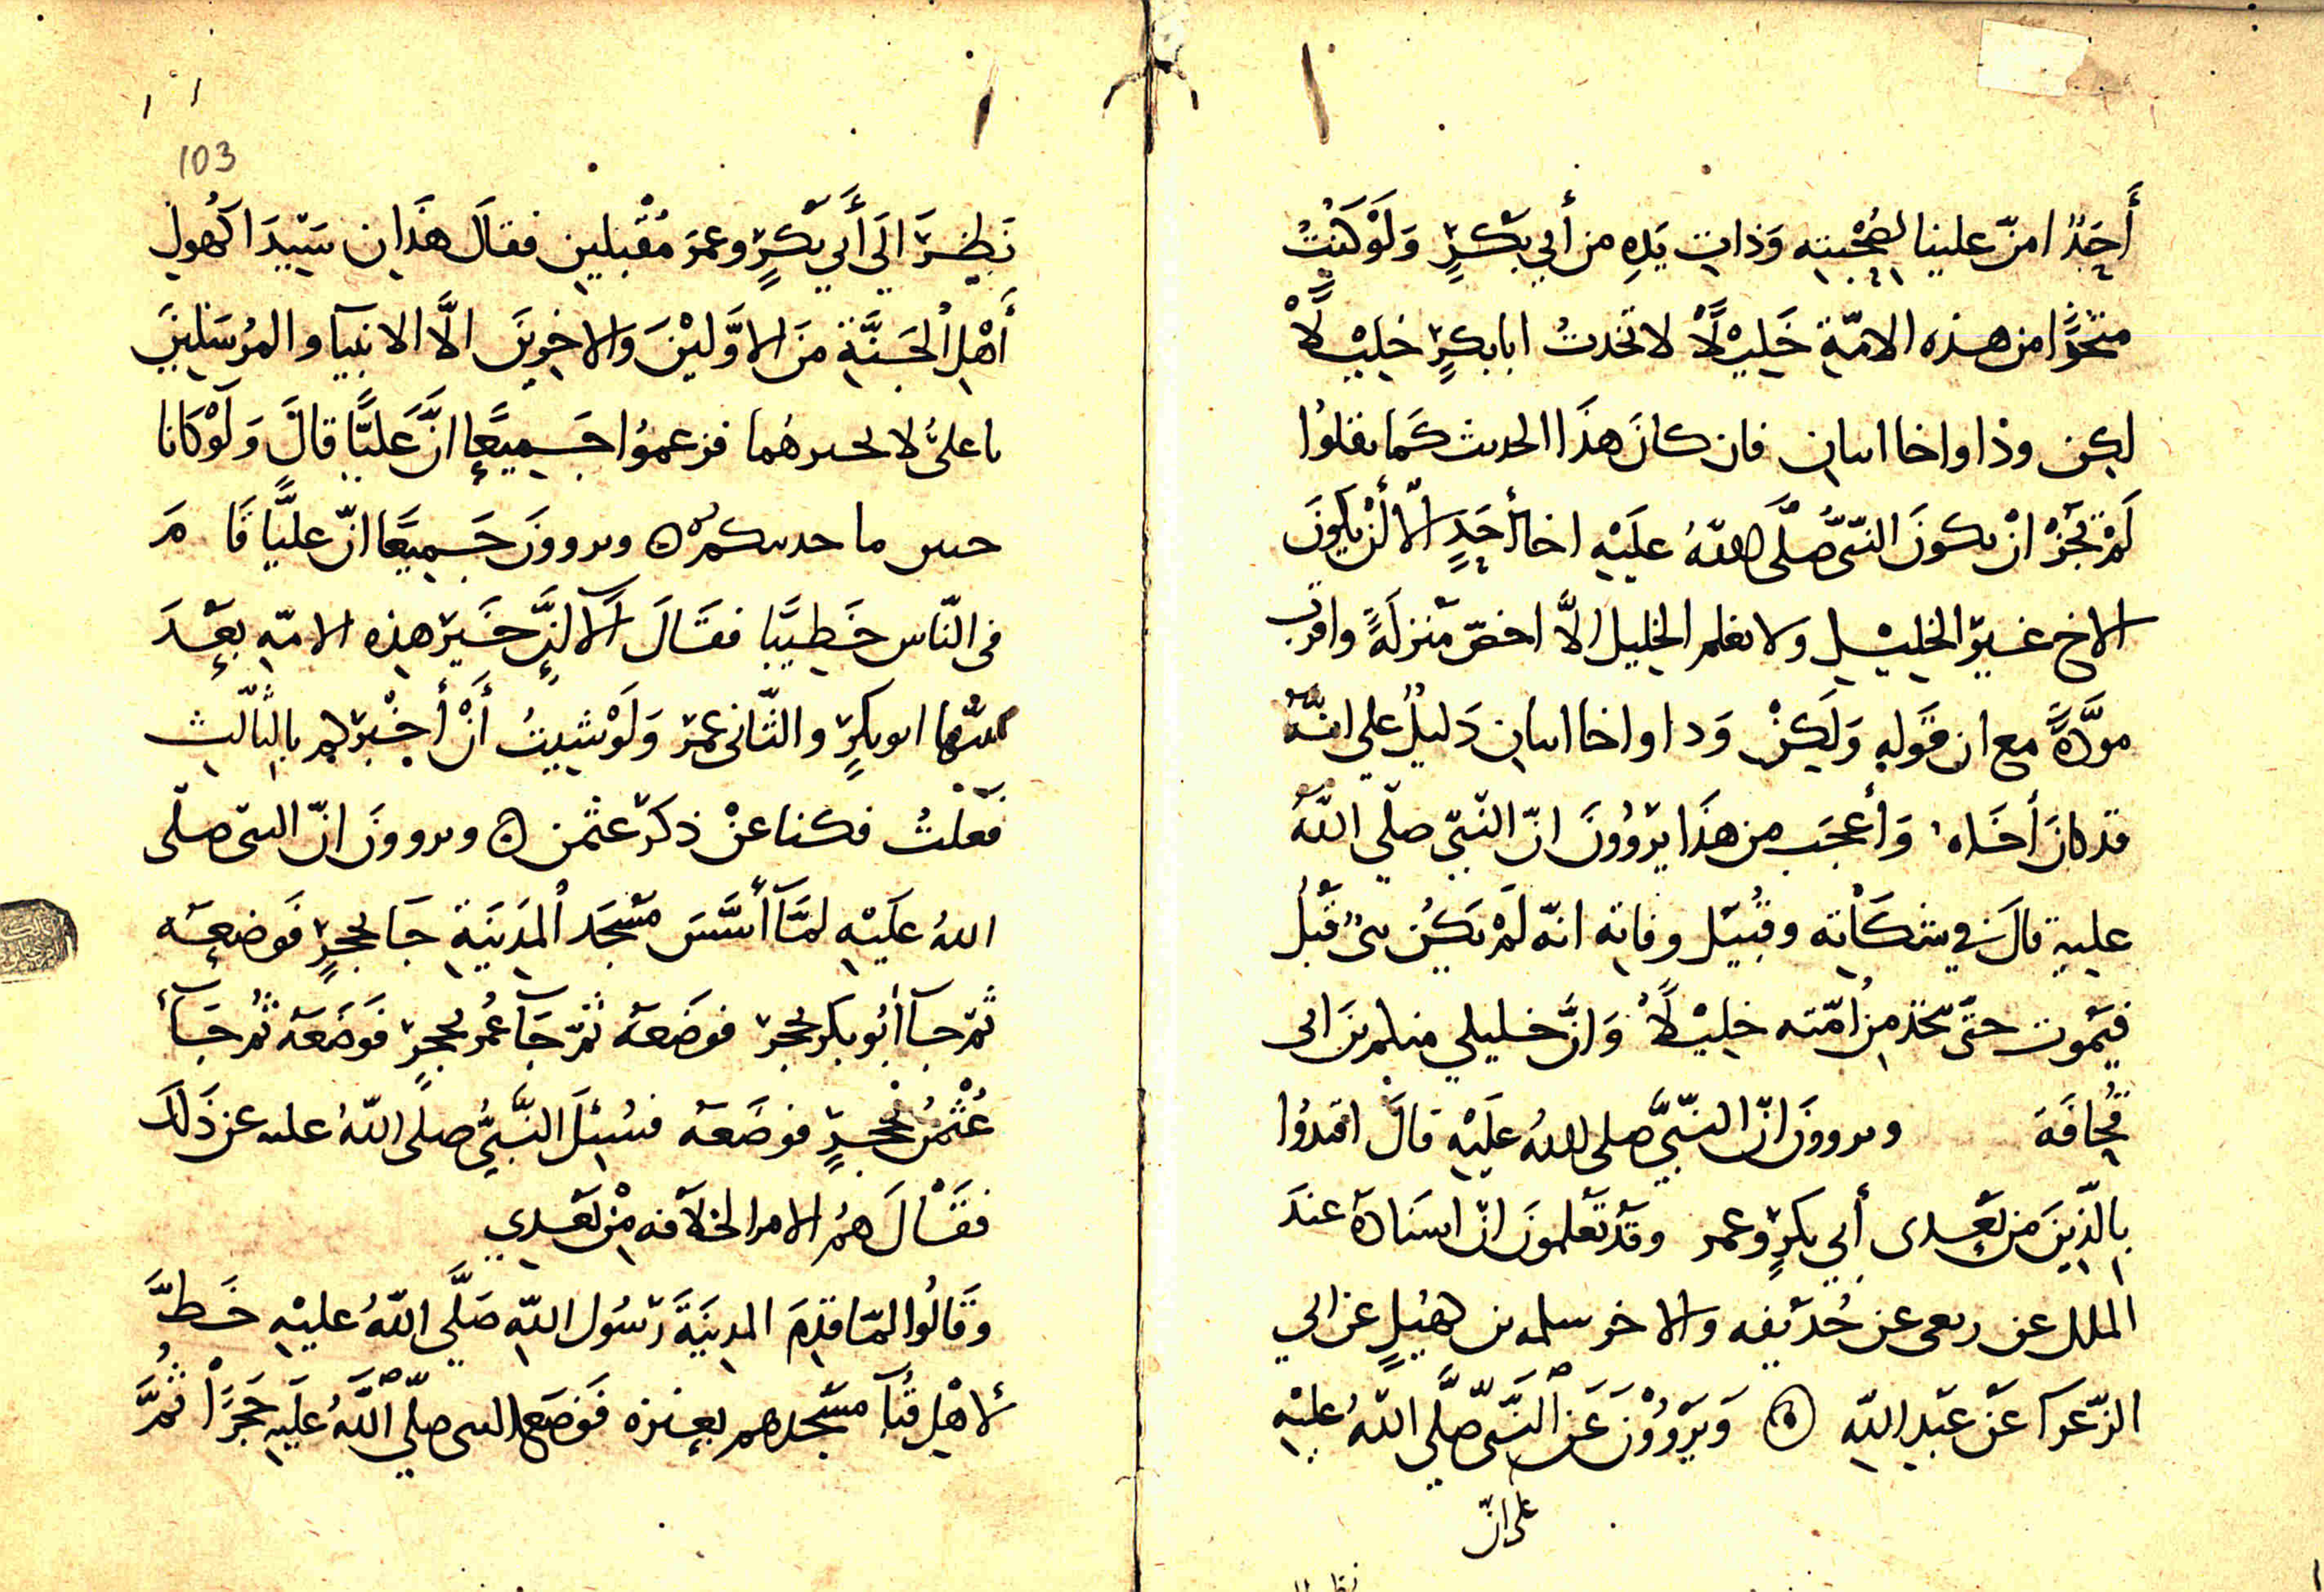 أَحَدٌ امنّ علينا بصُحْبته وَذات يَدِه من أبي بَكرٍ وَلَوْ كنتُ
متخذًا من هذه الامّة خَلِيْلًا لاتخدتُ ابا بكرٍ خلِيْلًا
لكِن ودًا واخا اىمان فان كانَ هذَا الحدىث كَما نقلوا
لَمْ تجُزْ انْ ىكونَ النّبىّ صلَّى اللهُ عليَهِ اخا لأحَدٍ الّا أنْ يكونَ
الاخ غيرَ الخليْل ولا نعلم الخليل الّا اخصّ منزلَةً واقرب
مودّةً مع ان قَوله وَلَكِنْ وَدا واخا اىمان دَليلٌ على انّهُ
قد كانَ أخَاه وَأعجَب من هذَا يرَوُونَ انّ النّبيّ صلّي اللّهُ
عليه قالَ في شَكَاْته وقبُيَل وفاته انّه لَمْ يَكُن نبىٌ قَبْلُ
فيَمُوت حتّى يتّخذ مِن امّته خلِيْلًا وَانّ خليلي منكم بنَ ابى
قُحافَة وىروونَ انّ النّبيَّ صلى اللهُ عليَهِ قالَ اقتدُوا
بالّذِينَ من بَعدى أبي بكرٍ وعمر وقَدْ تَعلمونَ انّ اسنَادهَ عندَ
الملك عن ربعى عن حُذيَفه والاخر سلمه بن كهيُلٍ عن ابي
الزّعرآ عَن عَبْد اللّهِ ۞ وَيرَوُوْنَ عَن النَّبىّ صلَّي اللّهُ عليْهِ
على انّ
103
نَظرَ الَي أَبي بَكْرٍ وعمَر مُقْبلين فقالَ هذَان سَيّدَا كُهولِ
أَهْلِ الْجَنَّةِ منَ الاوَّليْنَ والاخِرينَ الَّا الانبيآ والمُرسَلِينَ
ىا علىُّ لا تخبرهُما فزعموُا جَميعًا انّ عَليًّا قالَ وَلَوْ كَانا
حيين ما حدىتكم ۞ وىروونَ جَميعًا انّ عليًّا قَامَ
فى النّاس خَطِيبًا فقَالَ أَلا انَّ خَيرَ هذه الامّه بعْدَ
نبيّها ابو بكرٍ والثّانى عمر وَلَوْ شيتُ أَنْ أُخْبرَكم بالثّالث
فَعلتُ فكنا عنْ ذكر عثمن ۞ وىروونَ انّ النبىّ صلّى
اللهُ عليَه لمّا أسَّسَ مَسْجَد الْمَدينَةِ جَا بحَجرٍ فَوضعَه
ثمّ جآ أبُو بكر بحجرٍ فوضَعهَ ثمّ جَآ عُمر بحجرٍ فَوضَعَه ثمّ جَآ
عُثمْنُ بحجرٍ فوضَعهَ فسُئِلَ النَّبيُّ صلى اللّهُ عليه عن ذَلكَ
فقَالَ هُم الامرا لخلآفه مِنْ بَعدي
وقَالُوا لمّا قدِمَ المدينَةَ رَسُول اللّهِ صَلَّي اللّهُ عليْهِ خَطَّ
لأهْل قُبآ مَسْجدهم بعنزه فَوضَع النبى صلّى اللّهُ عليَهِ حَجَرًا ثُمَّ